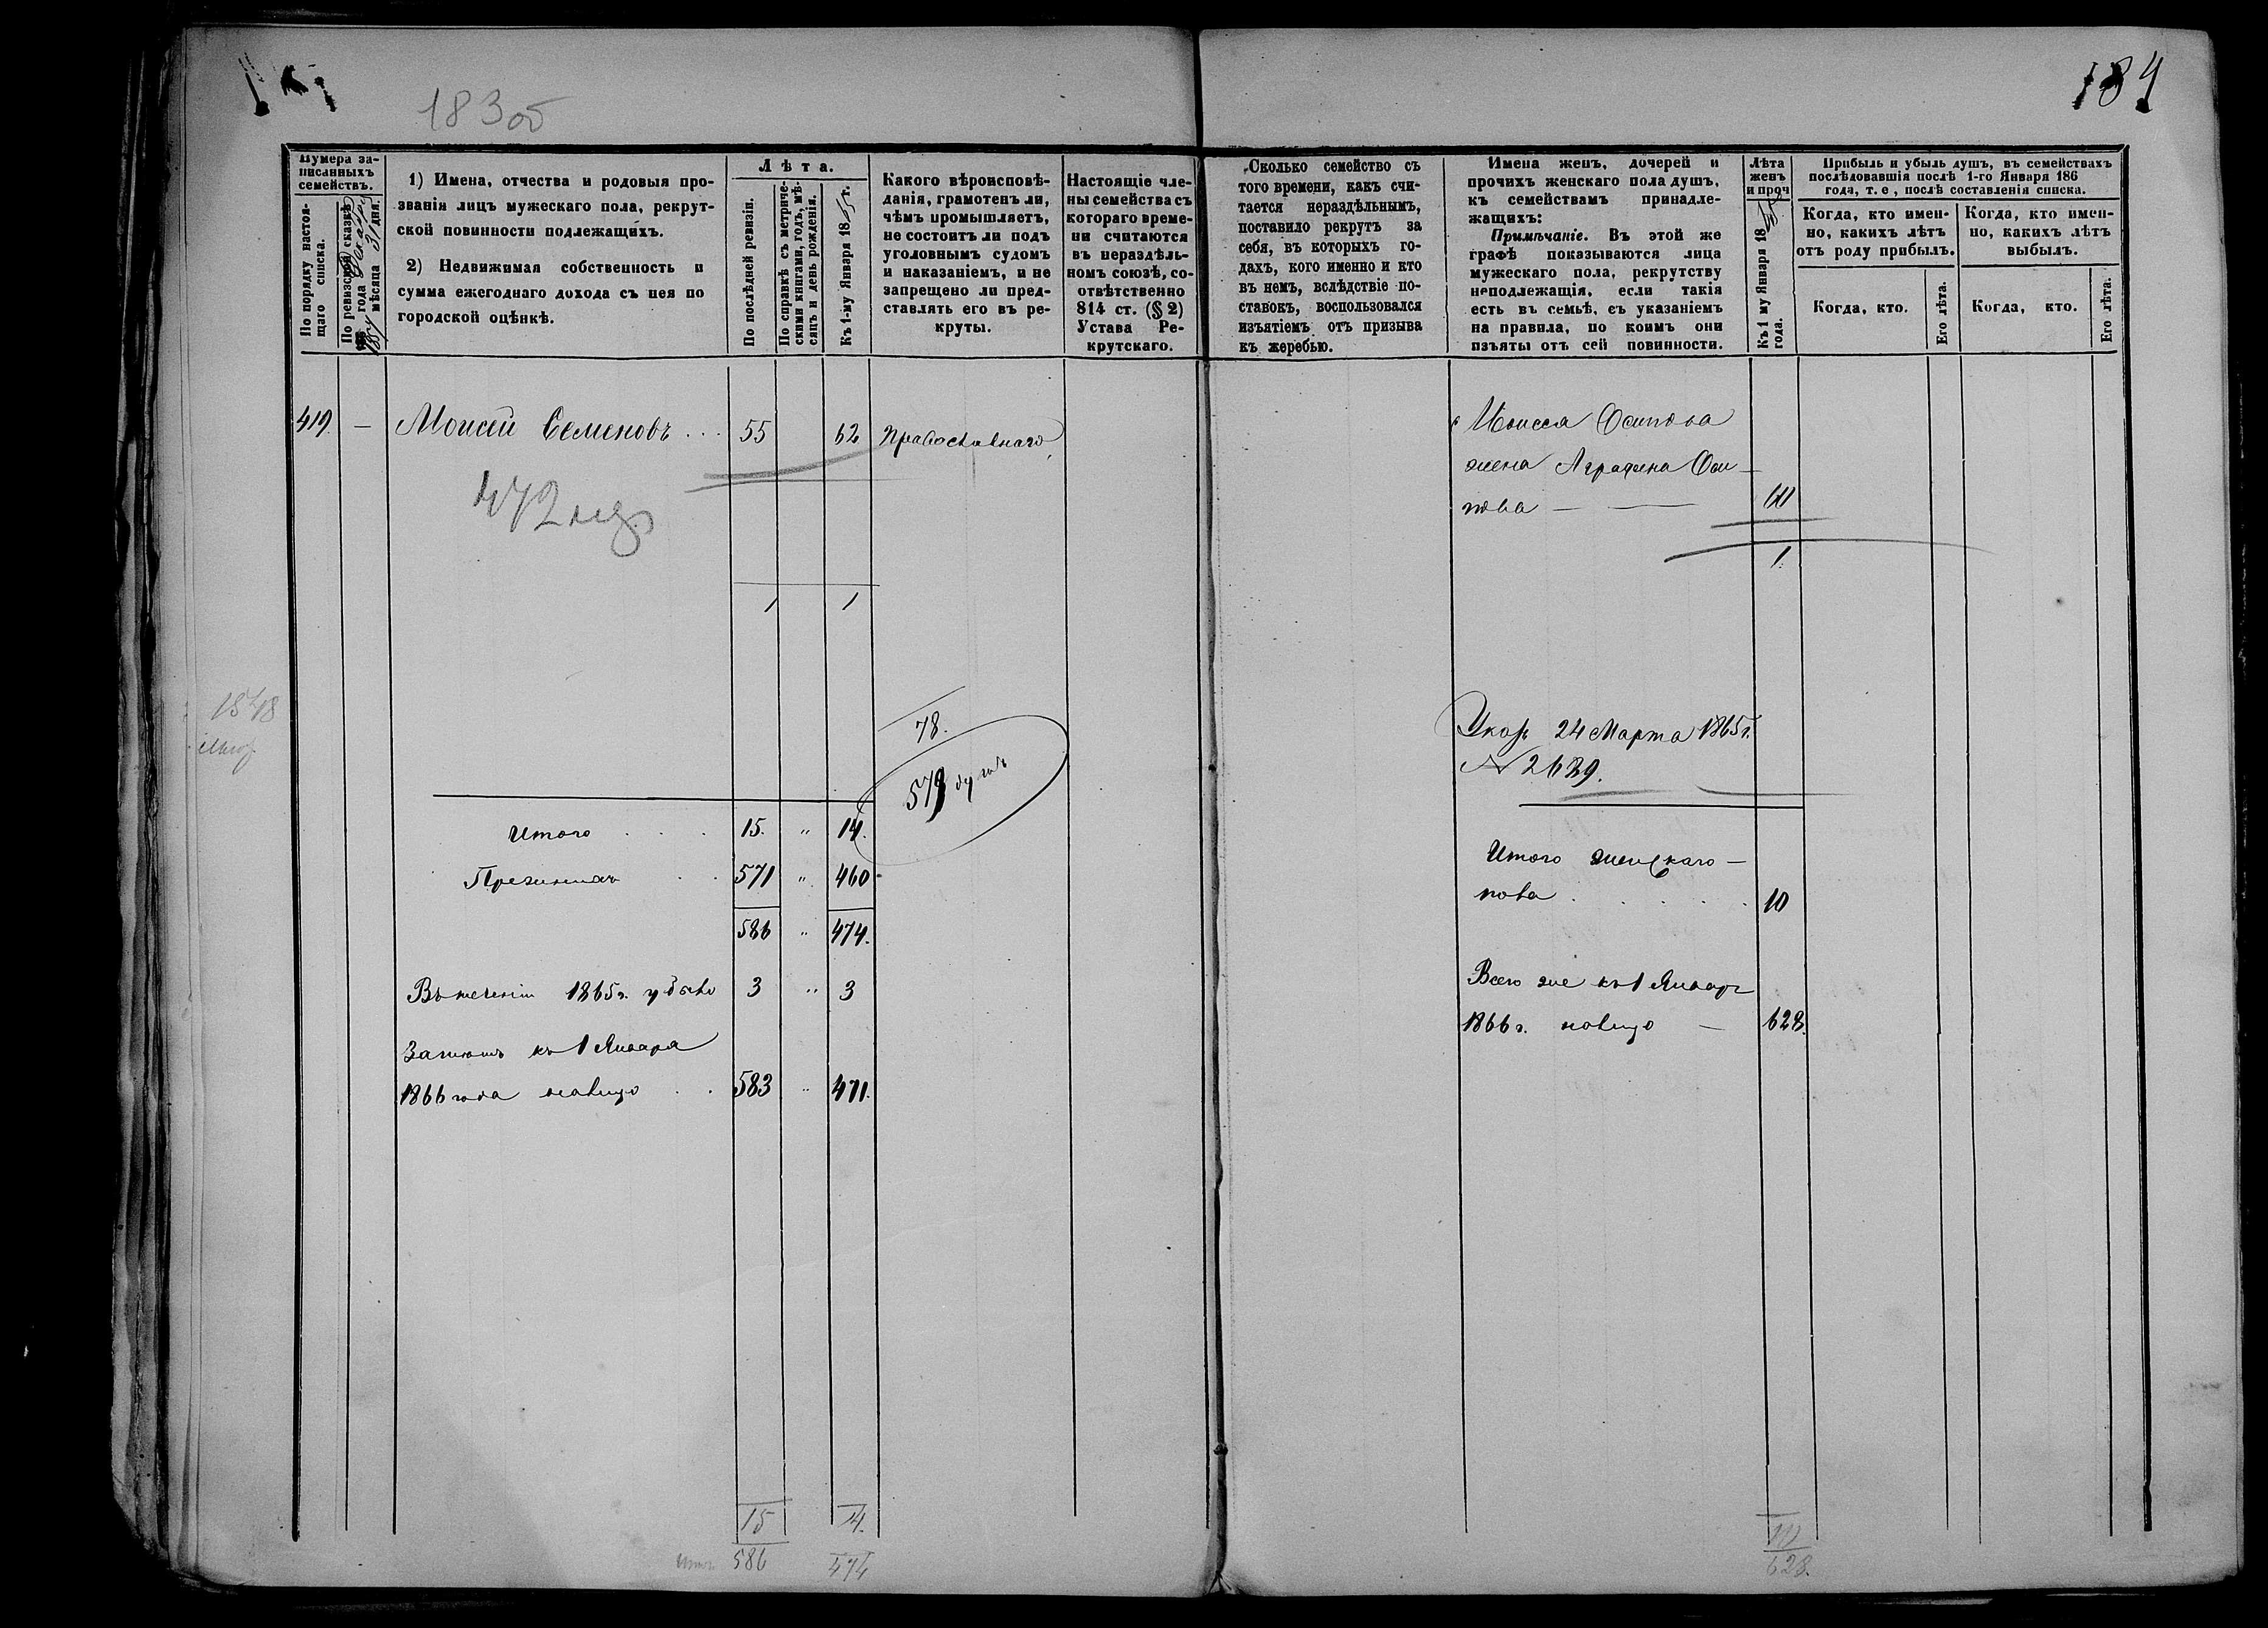 183об
184
Нумера за-
писанныхъ
семействъ.
По порядку настоя-
щаго списка.
По ревизской сказкѣ
года
мѣсяца 31 дня.
1) Имена, отчества и родовыя про-
званія лицъ мужескаго пола, рекрут-
ской повинности подлежащихъ.
2) Недвижимая собственность и
сумма ежегоднаго дохода съ нея по
городской оцѣнкѣ.
Лѣта.
По послѣдней ревизіи.
По справкѣ съ метриче-
скими книгами, годъ, мѣ-
сяцъ и день рожденія.
Къ 1-му Января 1865 г.
Какого вѣроисповѣ-
данія, грамотенъ ли,
чѣмъ промышляетъ,
не состоитъ ли подъ
уголовнымъ судомъ
и наказаніемъ, и не
запрещено ли пред-
ставлять его въ ре-
круты.
Настоящіе чле-
ны семейства съ
котораго време-
ни считаются
въ нераздѣль-
номъ союзѣ, со-
отвѣтственно
814 ст. (§ 2)
Устава Ре-
крутскаго.
Сколько семейство съ
того времени, какъ счи-
тается нераздѣльнымъ,
поставило рекрутъ за
себя, въ которыхъ го-
дахъ, кого именно и кто
въ немъ, вслѣдствіе по-
ставокъ, воспользовался
изъятіемъ отъ призыва
къ жеребью.
Имена женъ, дочерей и
прочихъ женскаго пола душъ,
къ семействамъ принадле-
жащихъ:
Примѣчаніе. Въ этой же
графѣ показываются лица
мужескаго пола, рекрутству
неподлежащія, если такія
есть въ семьѣ, съ указаніемъ
на правила, по коимъ они
изъяты отъ сей повинности.
Лѣта
женъ
и проч
Къ 1 му Января 1865
года.
Прибыль и убыль душъ, въ семействахъ
послѣдовавшія послѣ 1-го Января 186
года, т. е , послѣ составленія списка.
Когда, кто имен-
но, какихъ лѣтъ
отъ роду прибылъ.
Когда, кто имен-
но, какихъ лѣтъ
выбылъ.
Когда, кто.
Его лѣта.
Когда, кто.
Его лѣта.
419. — Моисей Семеновъ . . . 55 62 Православнаго
472
1 1
78.
579 душъ
Итого . . . 15. " 14.
Прежнихъ . . 571 " 460
586 " 474.
Въ теченіи 1865 г. убыло 3 " 3
Затемъ къ 1 Января
1866 года налицо . . 583 " 471.
15 14.
Итого 586 474
Моисея Осипова
жена Аграфена Оси-
пова —
1
Указъ 24 Марта 1865 г.
№ 2639.
Итого женскаго —
пола . . . . . 10
Всего же къ 1 Января
1866 г. налицо — 628.
10
628.